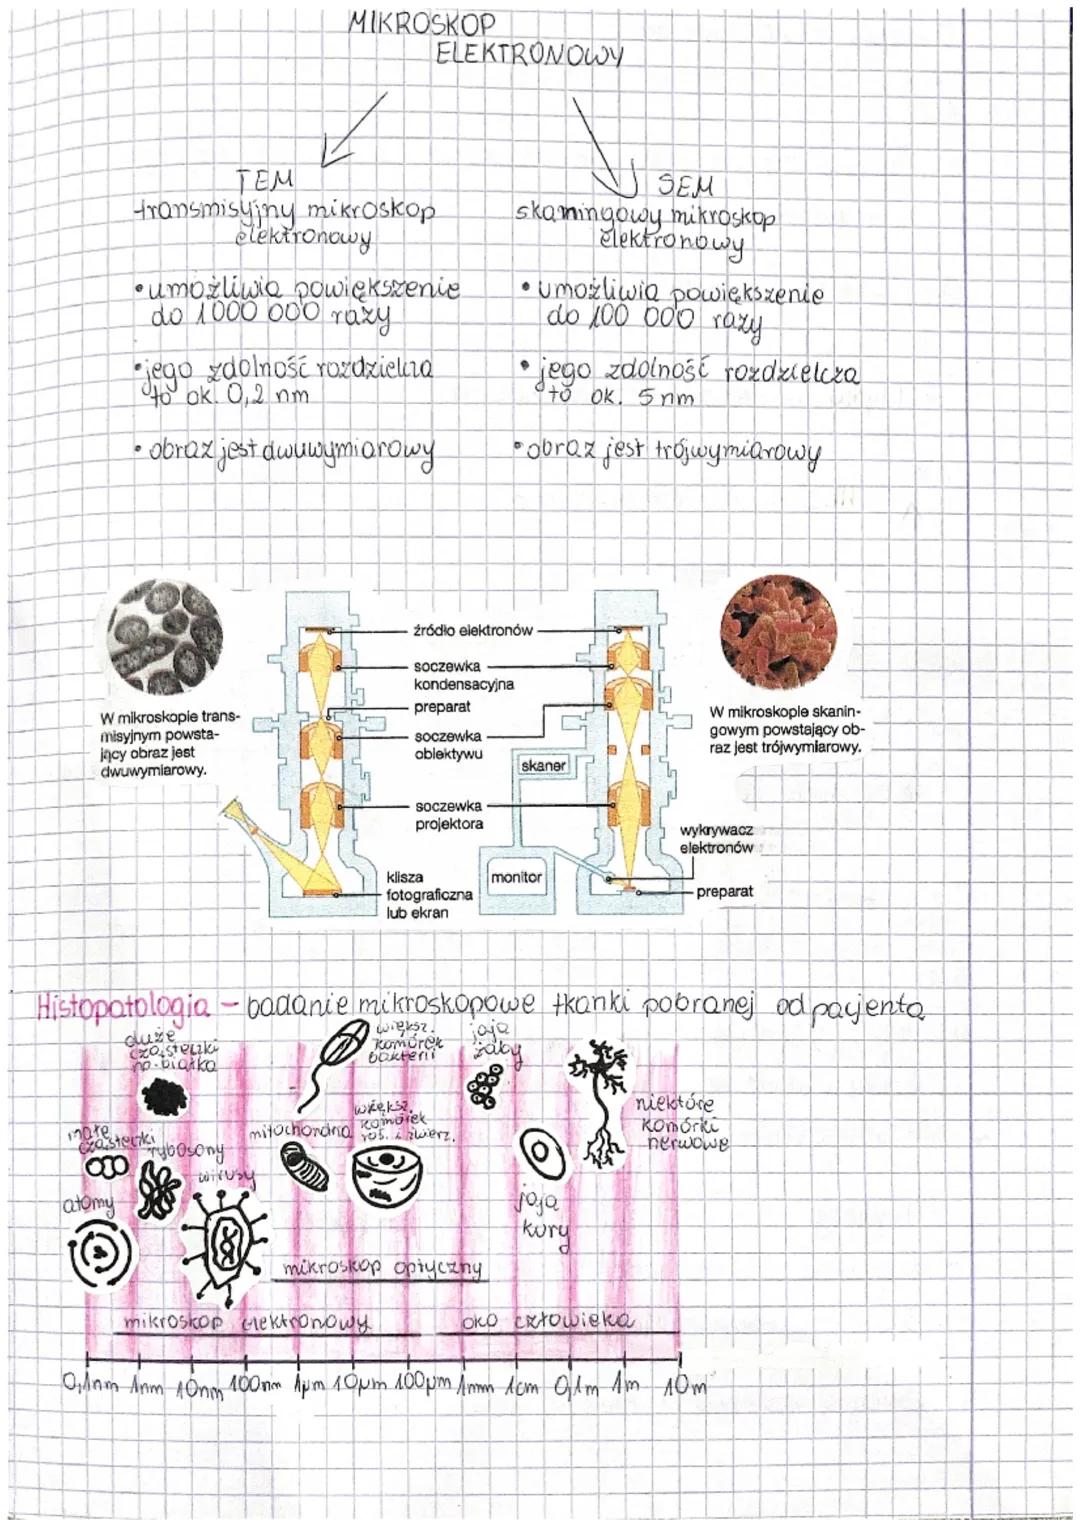 MIKROSKOP
ELEKTRONOWY
TEM
transmisyjny mikroskop
elektronowy
• umożliwia powiększenie
do 1000 000 razy
• jego zdolność rozdzielcza
to ok. 0,2 nm
• obraz jest dwuwymiarowy
SEM
skaningowy mikroskop
elektronowy
• umożliwia powiększenie
do 100 000 razy
• jego zdolność rozdzielcza
to ok. 5 nm
• obraz jest trójwymiarowy
W mikroskopie trans-
misyjnym powsta-
jący obraz jest
dwuwymiarowy.
źródło elektronów
soczewka
kondensacyjna
preparat
soczewka
obiektywu
skaner
soczewka
projektora
klisza
fotograficzna
lub ekran
monitor
W mikroskopie skanin-
gowym powstający ob-
raz jest trójwymiarowy.
wykrywacz
elektronów
preparat
Histopatologia - badanie mikroskopowe tkanki pobranej od pacjenta
duże
cząsteczki
np. białka
większ.
komórek
bakterii
jaja
żaby
małe
cząsteczki
rybosomy
mitochondria
większ.
komórek
roś. i zwierz.
niektóre
komórki
nerwowe
atomy
wirusy
jaja
kury
mikroskop optyczny
mikroskop elektronowy
oko człowieka
0,1nm 1nm 10nm 100nm 1µm 10µm 100µm 1mm 1cm 0,1m 1m 10m